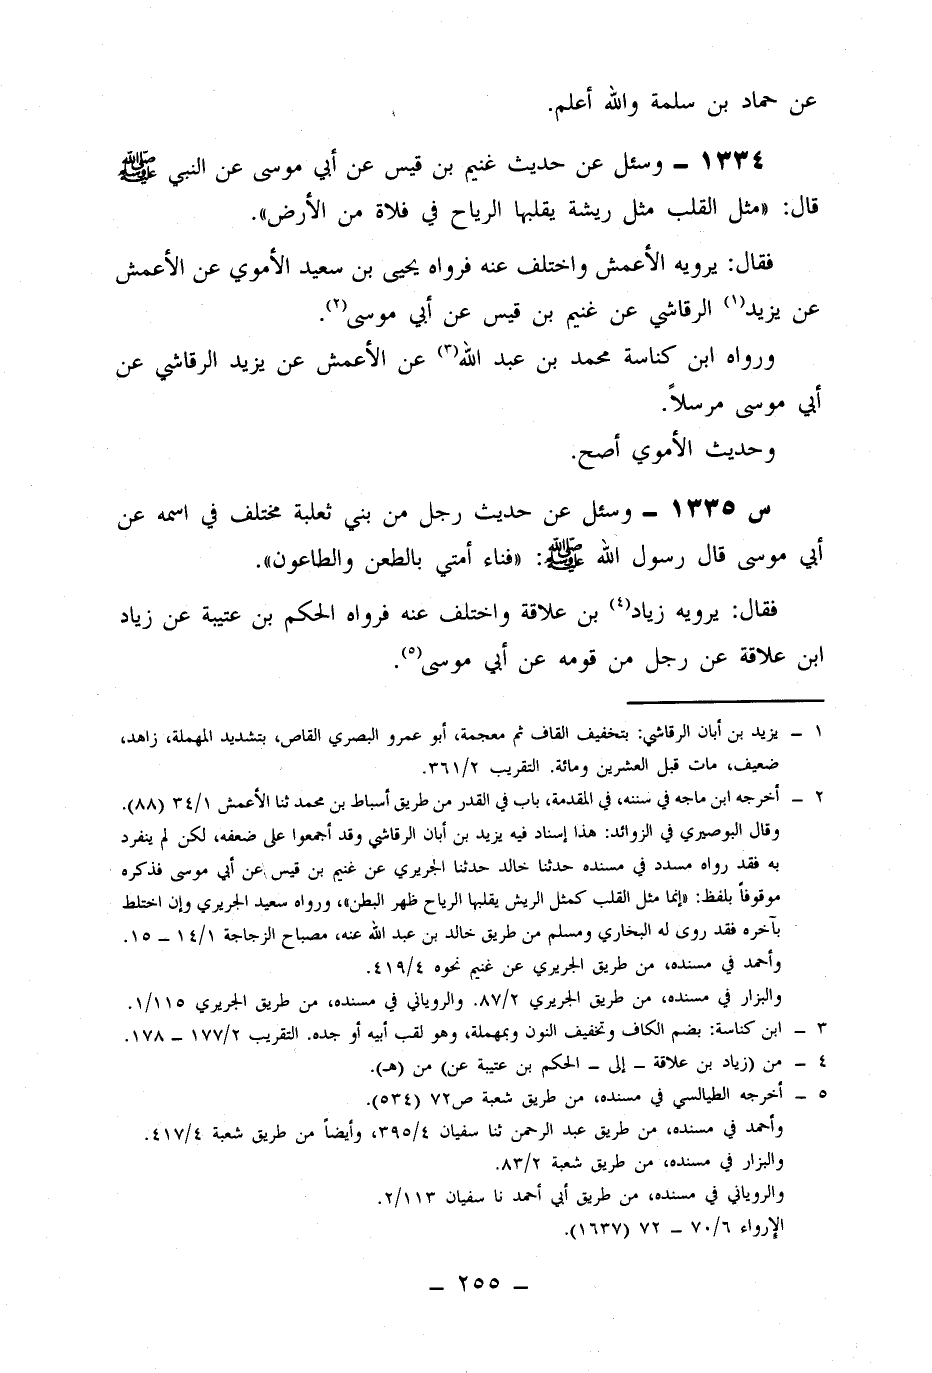 عن حماد بن سلمة والله أعلم.
١٣٣٤ ـ وسئل عن حديث غنيم بن قيس عن أبي موسى عن النبي ﷺ
قال: «مثل القلب مثل ريشة يقلبها الرياح في فلاة من الأرض».
فقال: يرويه الأعمش واختلف عنه فرواه يحيى بن سعيد الأموي عن الأعمش
عن يزيد(١) الرقاشي عن غنيم بن قيس عن أبي موسى(٢).
ورواه ابن كناسة محمد بن عبد الله(٣) عن الأعمش عن يزيد الرقاشي عن
أبي موسى مرسلاً.
وحديث الأموي أصح.
س ١٣٣٥ ـ وسئل عن حديث رجل من بني ثعلبة مختلف في اسمه عن
أبي موسى قال رسول الله ﷺ: «فناء أمتي بالطعن والطاعون».
فقال: يرويه زياد(٤) بن علاقة واختلف عنه فرواه الحكم بن عتيبة عن زياد
ابن علاقة عن رجل من قومه عن أبي موسى(٥).
١ ـ يزيد بن أبان الرقاشي: بتخفيف القاف ثم معجمة، أبو عمرو البصري القاص، بتشديد المهملة، زاهد،
ضعيف، مات قبل العشرين ومائة. التقريب ٣٦١/٢.
٢ ـ أخرجه ابن ماجه في سننه، في المقدمة، باب في القدر من طريق أسباط بن محمد ثنا الأعمش ٣٤/١ (٨٨).
وقال البوصيري في الزوائد: هذا إسناد فيه يزيد بن أبان الرقاشي وقد أجمعوا على ضعفه، لكن لم ينفرد
به فقد رواه مسدد في مسنده حدثنا خالد حدثنا الجريري عن غنيم بن قيس عن أبي موسى فذكره
موقوفاً بلفظ: «إنما مثل القلب كمثل الريش يقلبها الرياح ظهر البطن»، ورواه سعيد الجريري وإن اختلط
بآخره فقد روى له البخاري ومسلم من طريق خالد بن عبد الله عنه، مصباح الزجاجة ١٤/١ ـ ١٥.
وأحمد في مسنده، من طريق الجريري عن غنيم نحوه ٤١٩/٤.
والبزار في مسنده، من طريق الجريري ٨٧/٢. والروياني في مسنده، من طريق الجريري ١/١١٥.
٣ ـ ابن كناسة: بضم الكاف وتخفيف النون وبمهملة، وهو لقب أبيه أو جده. التقريب ١٧٧/٢ ـ ١٧٨.
٤ ـ من (زياد بن علاقة ـ إلى ـ الحكم بن عتيبة عن) من (هـ).
٥ ـ أخرجه الطيالسي في مسنده، من طريق شعبة ص٧٢ (٥٣٤).
وأحمد في مسنده، من طريق عبد الرحمن ثنا سفيان ٣٩٥/٤، وأيضاً من طريق شعبة ٤١٧/٤.
والبزار في مسنده، من طريق شعبة ٨٣/٢.
والروياني في مسنده، من طريق أبي أحمد نا سفيان ٢/١١٣.
الإرواء ٧٠/٦ ـ ٧٢ (١٦٣٧).
ـ ٢٥٥ ـ